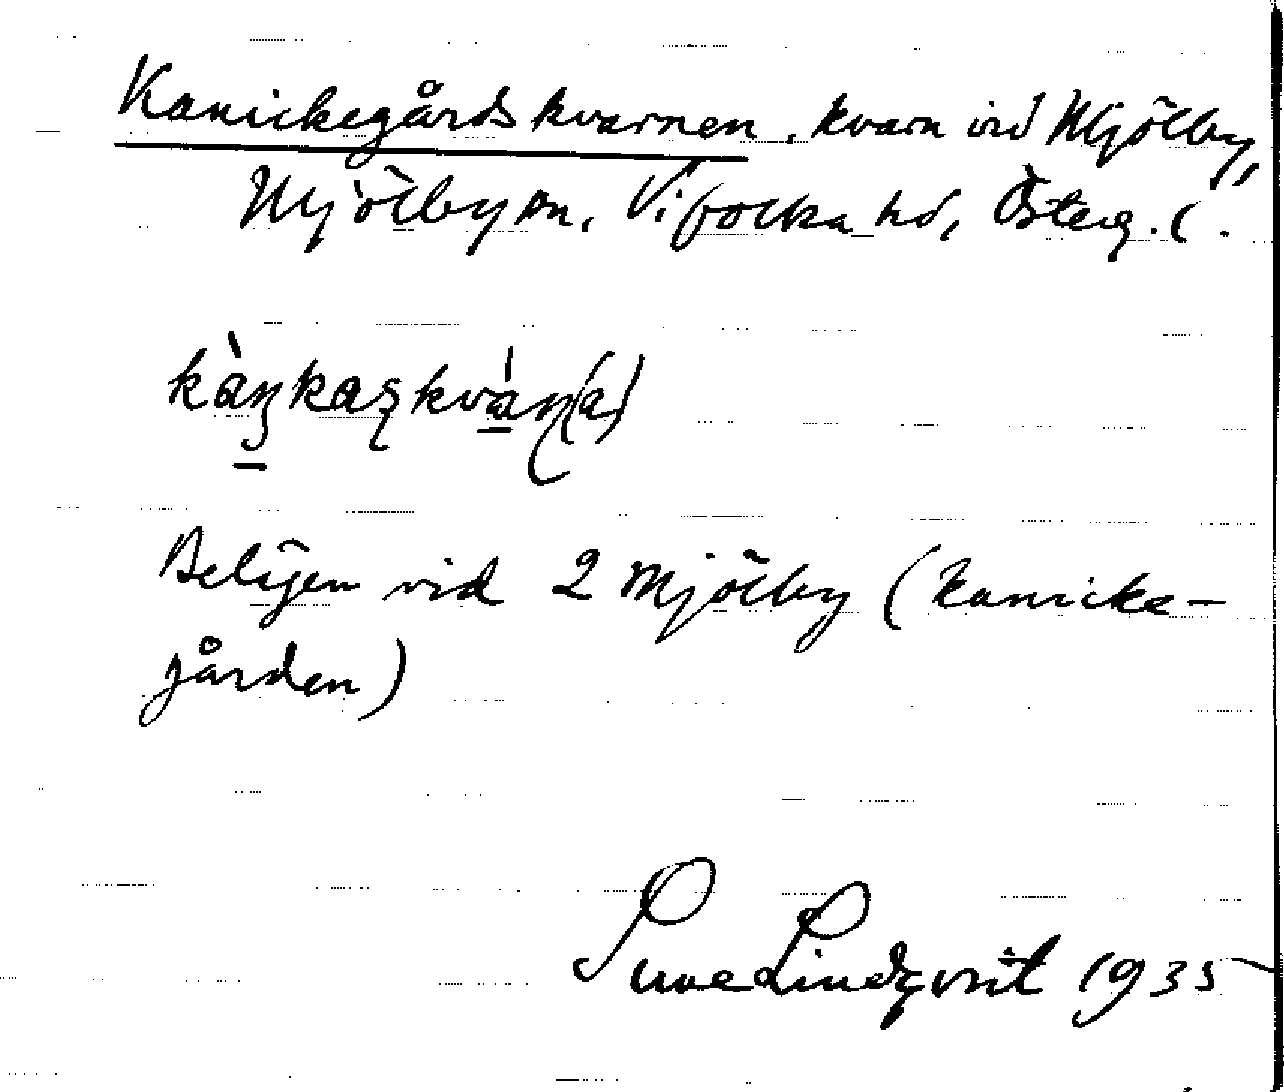 Kanickegårdskvarnen, kvarn vid Mjölby,
Mjölby sn, Vifolka hd, Österg. l.
Belägen vid 2 Mjölby (Kanicke-
gården)
Sune Lindqvist 1935